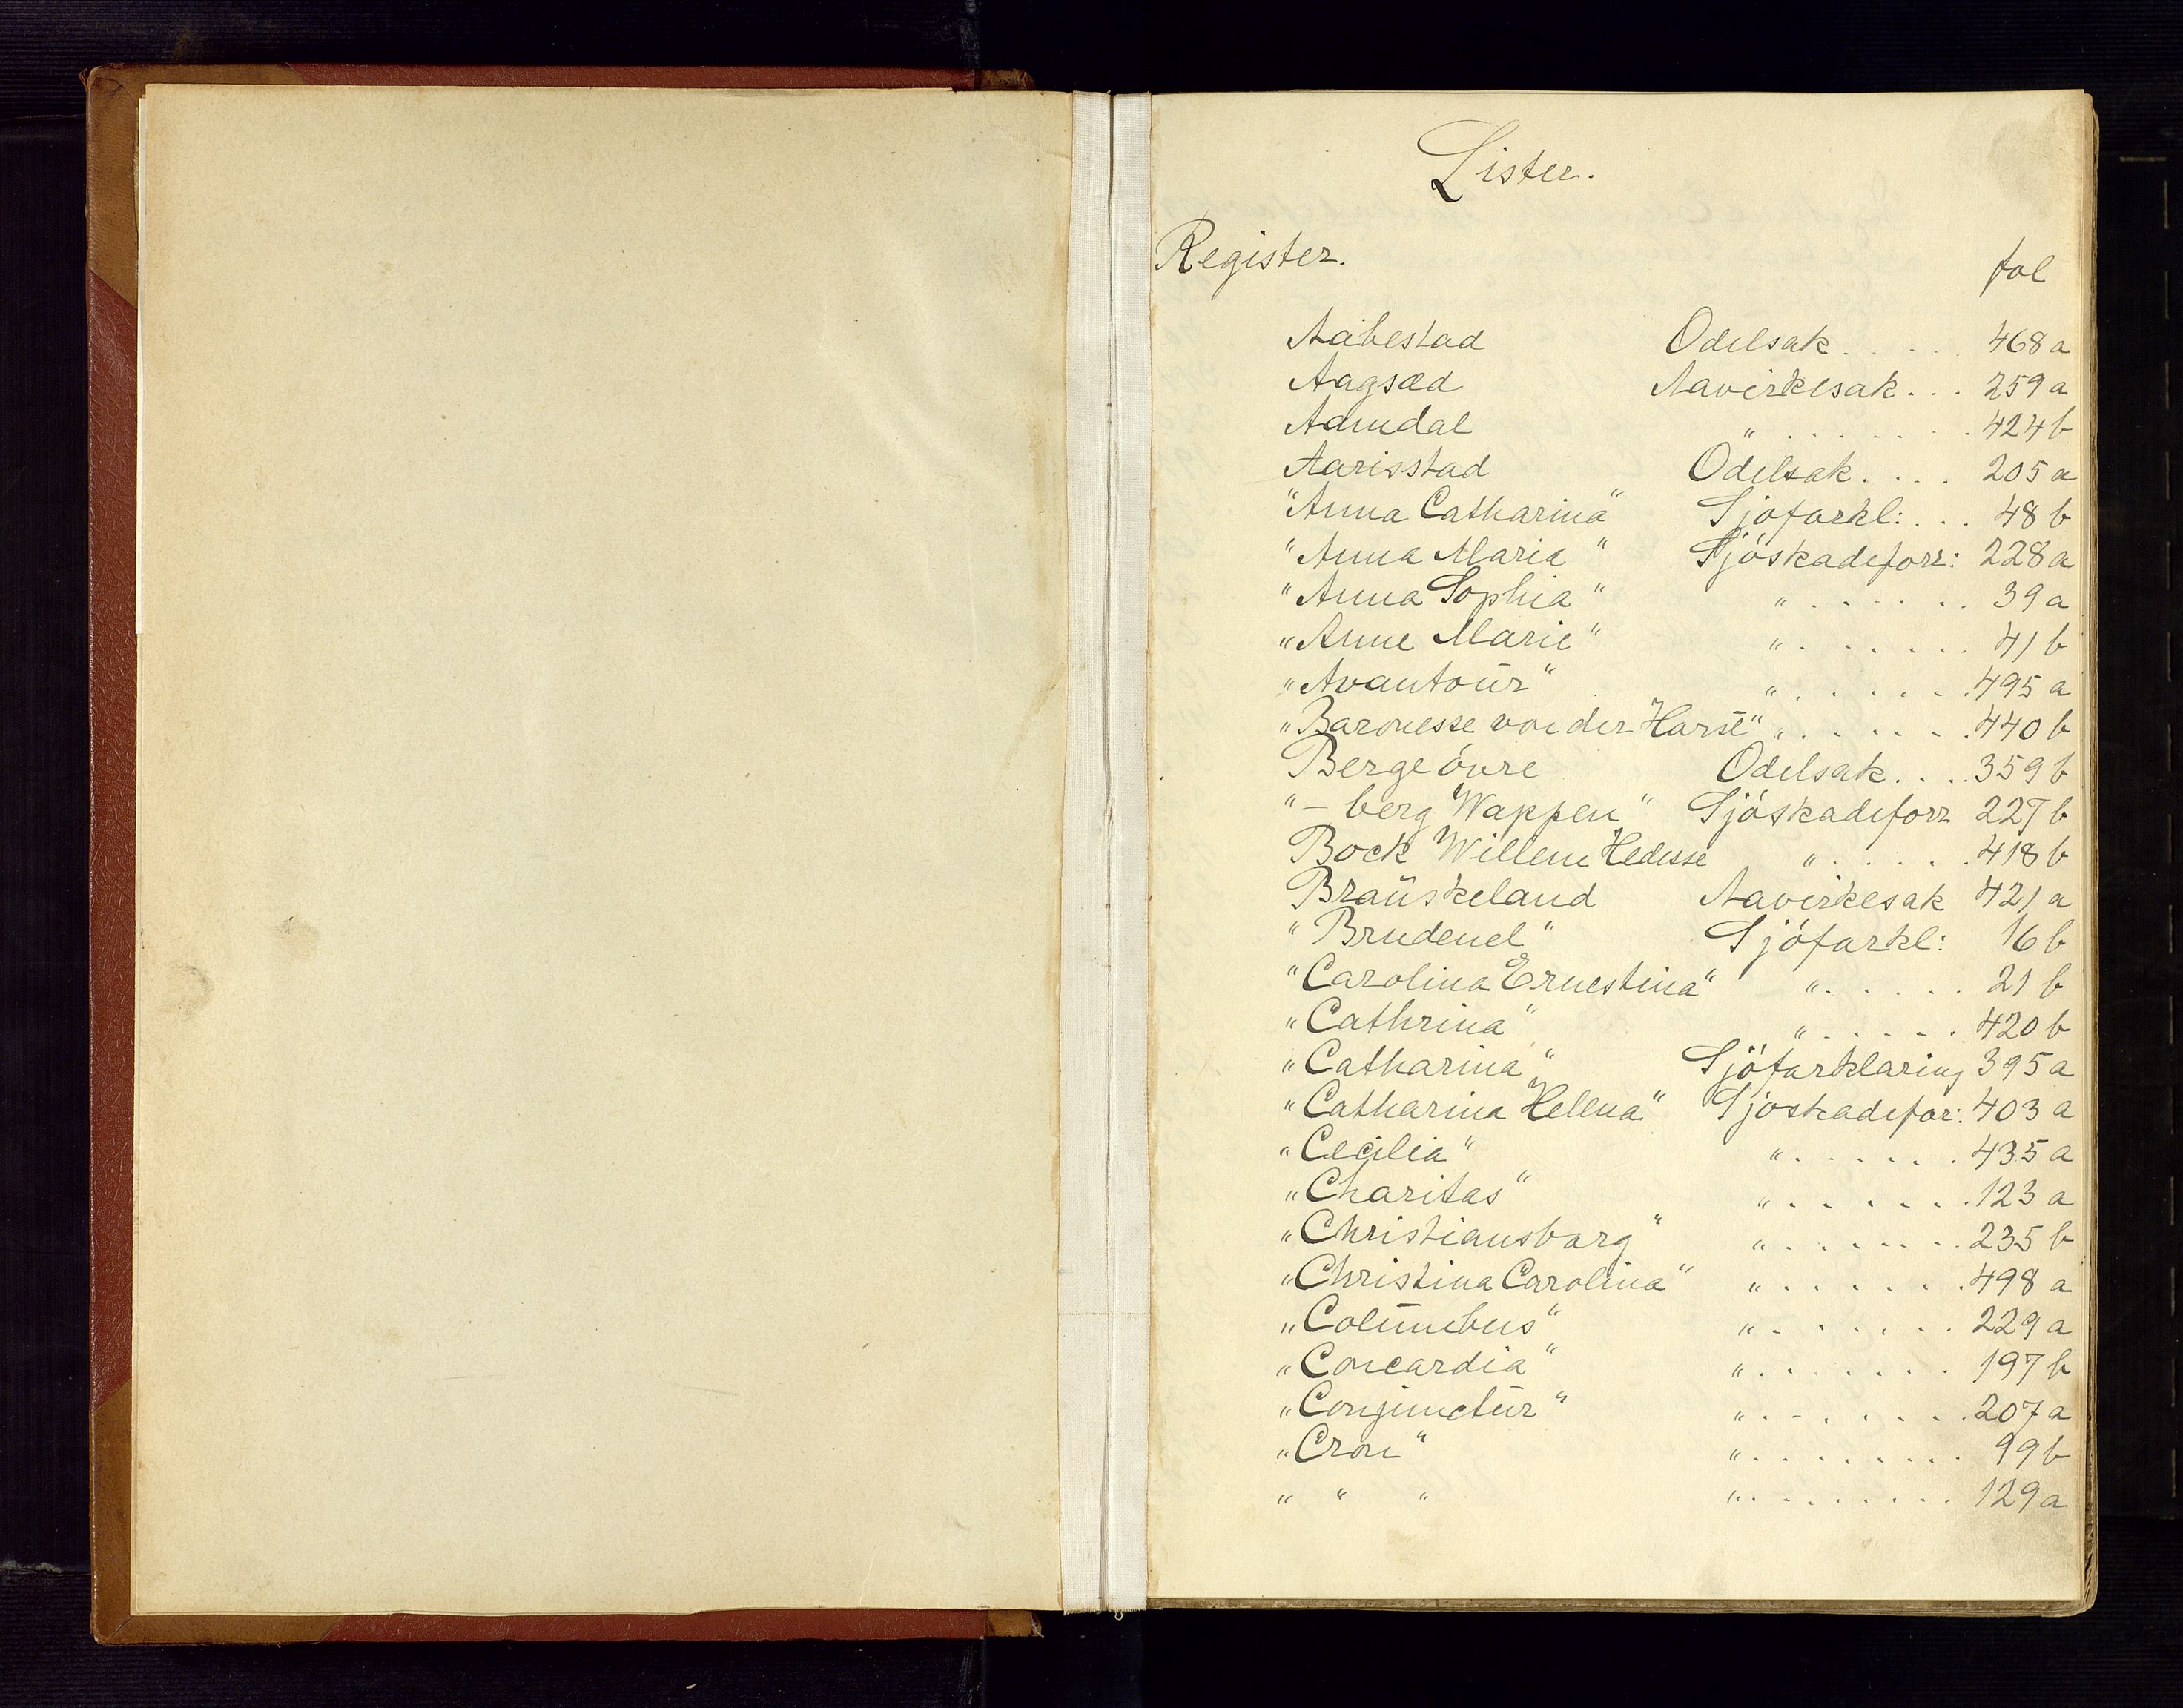 Lister.
Register.
fol
Aabestad Odelsak. . . . . 468 a
Aagsæd Aavirkesak. . . 259 a
Aamdal " . . . . . . . . 424 b
Aarisstad Odelsak. . . . 205 a
"Anna Catharina" Sjøfarkl: . . . 48 b
"Anna Maria" Sjøskadeforr: 228 a
"Anna Sophia" " . . . . . . 39 a
"Anne Marie" " . . . . . . 41 b
"Avantoúr" " . . . . . . 495 a
"Baronesse von der Harse" " . . . . . . 440 b
Berge øvre Odelsak. . . . 359 b
"– berg Wappen" Sjøskadeforr 227 b
Bock Willem Hedesse " . . . . . 418 b
Braúskeland Aavirkesak 421 a
"Brudenel" Sjøfarkl: 16 b
"Carolina Ernestina" " . . . . . 21 b
"Cathrina" " . . . . . 420 b
"Catharina" Sjøfarklaring 395 a
"Catharina Helena" Sjøskadefor: 403 a
"Cecilia" " . . . . . . 435 a
"Charitas" " . . . . . . 123 a
"Christiansborg" " . . . . . . 235 b
"Christina Carolina" " . . . . . . 498 a
"Colúmbus" " . . . . . . 229 a
"Concardia" " . . . . . . . 197 b
"Conjunctúr" " . . . . . . . 207 a
"Cron" " . . . . . . . . 99 b
" " " " . . . . . . . . 129 a